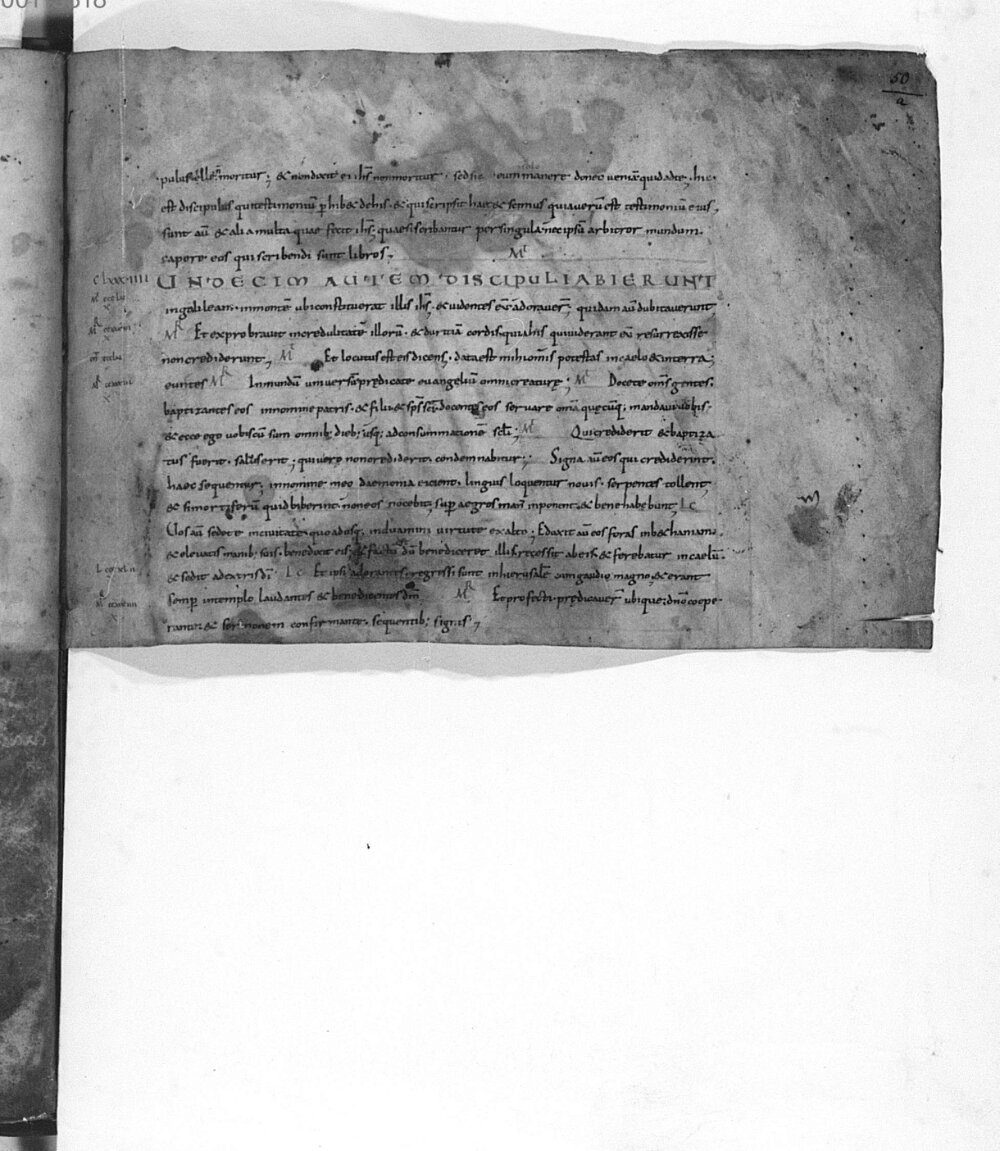 50
a
pulus ille n̄ moritur; & non dixit ei ih̄s non moritur. sed sic eum manere donec veniā quid ad te. hic
est discipulus qui testimoniū phib& de his. & qui scripsit haec & scimus quia verū est testimoniū eius,
sunt aū & alia multa quae fecit ih̄s; quae si scribantur per singula nec ipsū arbitror mundum.
capere eos qui scribendi sunt libros. Mt
clxxxiiii UNDECIM AUTEM DISCIPULI ABIERUNT
in galileam. in monte ubi constituerat illis ih̄s; & videntes eū adoraver̄; quidam aū dubitaverunt
MR Et exprobravit incredulitatē illorū. & duritiā cordis quia his qui viderant eū resurrexisse
non crediderunt; Mt Et locutus est eis dicens; data est mihi omnis potestas in caelo & in terra;
euntes MR In mundū universū predicate evangeliū omni creaturę; Mt Docete om̄s gentes.
baptizantes eos in nomine patris. & filii & sp̄s sc̄i. docentes eos servare om̄a quęcūq; mandavi vobis.
& ecce ego vobiscū sum omnib; dieb; usq; ad consummationē sc̄li; MR Qui crediderit & baptiza
tus fuerit. salvus erit; qui vero non crediderit. condemnabitur; Signa aū eos qui crediderint.
haec sequentur; in nomine meo daemonia eicient. linguis loquentur novis. serpentes tollent
& si mortiferū quid biberint. non eos nocebit; sup aegros man' inponent. & bene habebunt LC
Vos aū sedete in civitate. quo adusq; induamini virtutē ex alto; Eduxit aū eos foras in bethaniam.
& elevatis manib; suis. benedixit eis; & factū dū benediceret illis. recessit ab eis & ferebatur in caelū.
& sedit a dextris dī LC Et ipsi adorantes. regressi sunt in hierusalē cum gaudio magno; & erant
semp in templo laudantes & benedicentes dm̄ MR Et profecti. predicaver̄ ubique; dn̄o coope
rante. & sermonem confirmante. sequentib; signis;